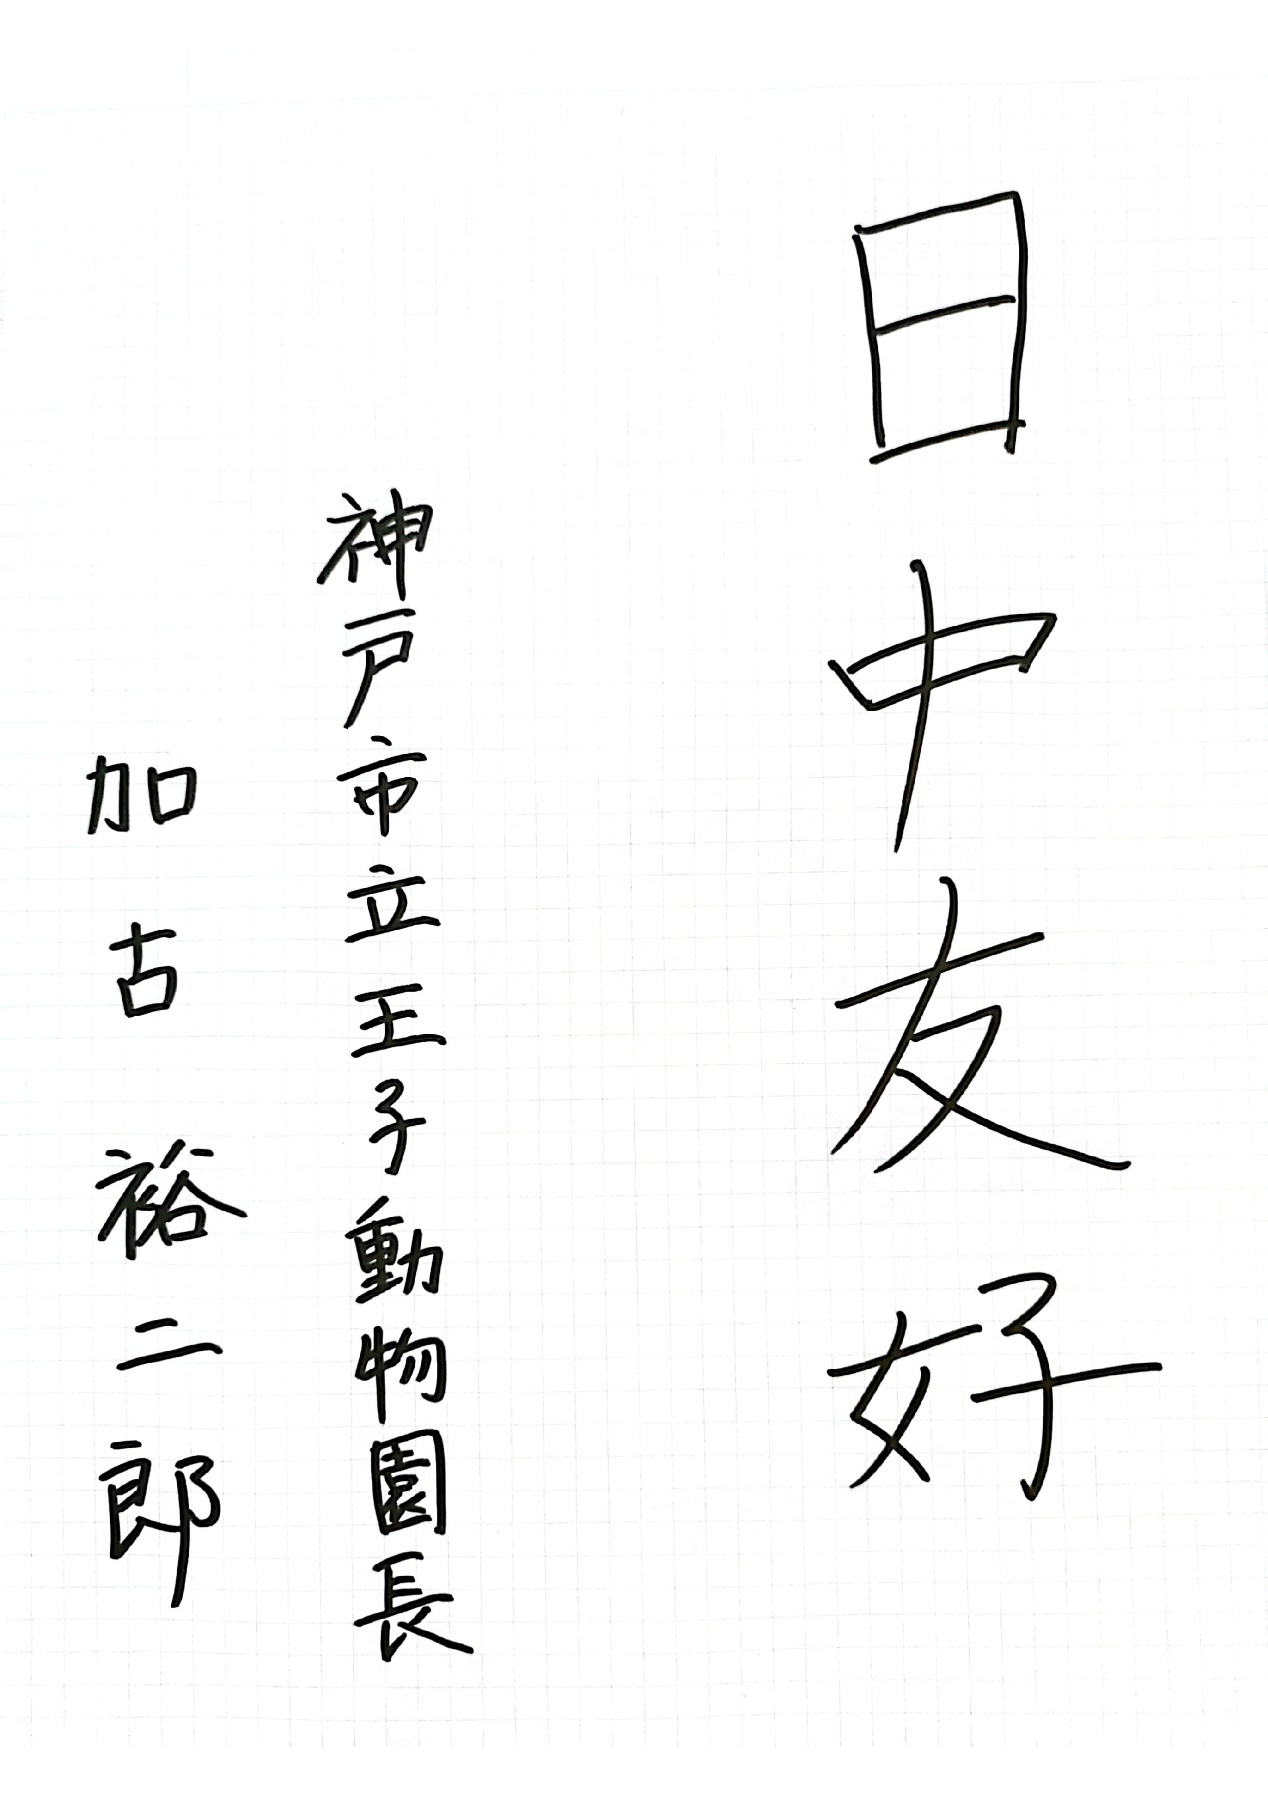 日中友好
神戸市立王子動物園長
加古裕二郎